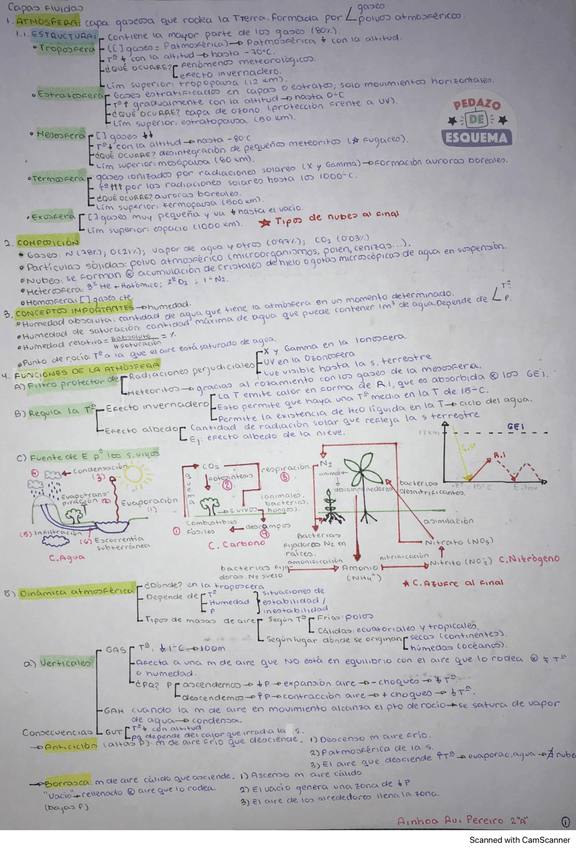 Capas fluidas
1. ATMÓSFERA: capa gaseosa que rodea la Tierra. Formada por gases
polvos atmosféricos.
1.1. ESTRUCTURA:
Troposfera
contiene la mayor parte de los gases (80%).
([] gases = Patmosférica) → Patmosférica ↓ con la altitud.
Tª ↓ con la altitud → hasta -70ºC.
¿QUÉ OCURRE? Fenómenos meteorológicos.
efecto invernadero.
Lím superior: tropopausa (12 km).
Estratosfera
Gases estratificados en capas o estratos, solo movimientos horizontales.
Tª ↑ gradualmente con la altitud → hasta 0ºC
¿QUÉ OCURRE? capa de ozono (protección frente a UV).
Lím superior: estratopausa (50 km).
PEDAZO
DE
ESQUEMA
Mesosfera
[] gases ↓↓
Tª ↓ con la altitud → hasta -80ºC
¿QUÉ OCURRE? desintegración de pequeños meteoritos (★ fugaces).
Lím superior: mesopausa (80 km).
Termosfera
gases ionizados por radiaciones solares (X y Gamma) → formación auroras boreales.
Tª ↑↑↑ por las radiaciones solares hasta los 1000ºC.
¿QUÉ OCURRE? auroras boreales.
Lím superior: termopausa (500 km).
Exosfera
[] gases muy pequeña y va ↓ hasta el vacío.
Lím superior: espacio (1000 km).
★ Tipos de nubes al final
2. COMPOSICIÓN
Gases: N (78%), O (21%), vapor de agua y otros (0'97%), CO₂ (0'03%)
Partículas sólidas: polvo atmosférico (microorganismos, polen, cenizas...).
Nubes: se forman acumulación de cristales de hielo o gotas microscópicas de agua en suspensión.
Heterosfera:
Homosfera: [] gases cte
3. CONCEPTOS IMPORTANTES → humedad.
Humedad absoluta: cantidad de agua que tiene la atmósfera en un momento determinado.
Humedad de saturación: cantidad máxima de agua que puede contener 1m³ de agua. Depende de Tª
P.
Humedad relativa =
Punto de rocío: Tª a la que el aire está saturado de agua.
4. FUNCIONES DE LA ATMÓSFERA
A) Filtro protector de
Radiaciones perjudiciales
X y Gamma en la Ionosfera
UV en la Ozonosfera
Luz visible hasta la s. terrestre
Meteoritos → gracias al rozamiento con los gases de la mesosfera.
B) Regula la Tª
Efecto invernadero
La T emite calor en forma de RI, que es absorbida los GEI.
Esto permite que haya una Tª media en la T de 15ºC.
Permite la existencia de H₂O líquida en la T → ciclo del agua.
Efecto albedo
Cantidad de radiación solar que refleja la s terrestre
Ej: efecto albedo de la nieve.
C) Fuente de E pª los s. vivos
Condensación
(3)
Evapotranspiración
Evaporación
(1)
(5) Infiltración
(6) Escorrentía
subterránea
C. Agua
CO₂
fotosíntesis
respiración
s. vivos
(animales,
bacterias,
hongos)
Combustibles
fósiles
descomp.
C. Carbono
N₂
descomponedores
bacterias
desnitrificantes.
bacterias
fijadoras N₂ en
raíces.
asimilación
Nitrato (NO₃)
nitrificación
amonificación
bacterias fijadoras N₂ suelo
Amonio
(NH₄⁺)
Nitrito (NO₂)
C. Nitrógeno
12km
GEI
R.I
★ C. Azufre al final
5) Dinámica atmosférica
¿Dónde? en la troposfera
Depende de
Tª
Humedad
P
situaciones de
estabilidad /
inestabilidad
Tipos de masas de aire
Según Tª
Frías: polos
Cálidas: ecuatoriales y tropicales.
Según lugar donde se originan
secas (continentes).
húmedas (océanos).
a) Verticales
GAS
Tª ↓ 1ºC → 100m
Afecta a una m de aire que NO está en equilibrio con el aire que lo rodea ≠ Tª
o humedad.
ascendemos → ↓P → expansión aire → - choques → ↓Tª
descendemos → ↑P → contracción aire → + choques → ↑Tª
GAH cuando la m de aire en movimiento alcanza el pto de rocío → se satura de vapor
de agua → condensa.
GVT
Tª ↓ con altitud
pq depende del calor que irradia la s.
Consecuencias
→ Anticiclón (altas P): m de aire frío que desciende.
1) Descenso m aire frío.
2) Patmosférica de la s.
3) El aire que desciende ↑Tª → evaporac. agua → ∄ nubes
→ Borrasca: m de aire cálido que asciende.
"Vacío" → rellenado aire que lo rodea.
(bajas P)
1) Ascenso m aire cálido
2) El vacío genera una zona de ↓P
3) El aire de los alrededores llena la zona.
Ainhoa Avi Pereiro 2ºA
1
Scanned with CamScanner